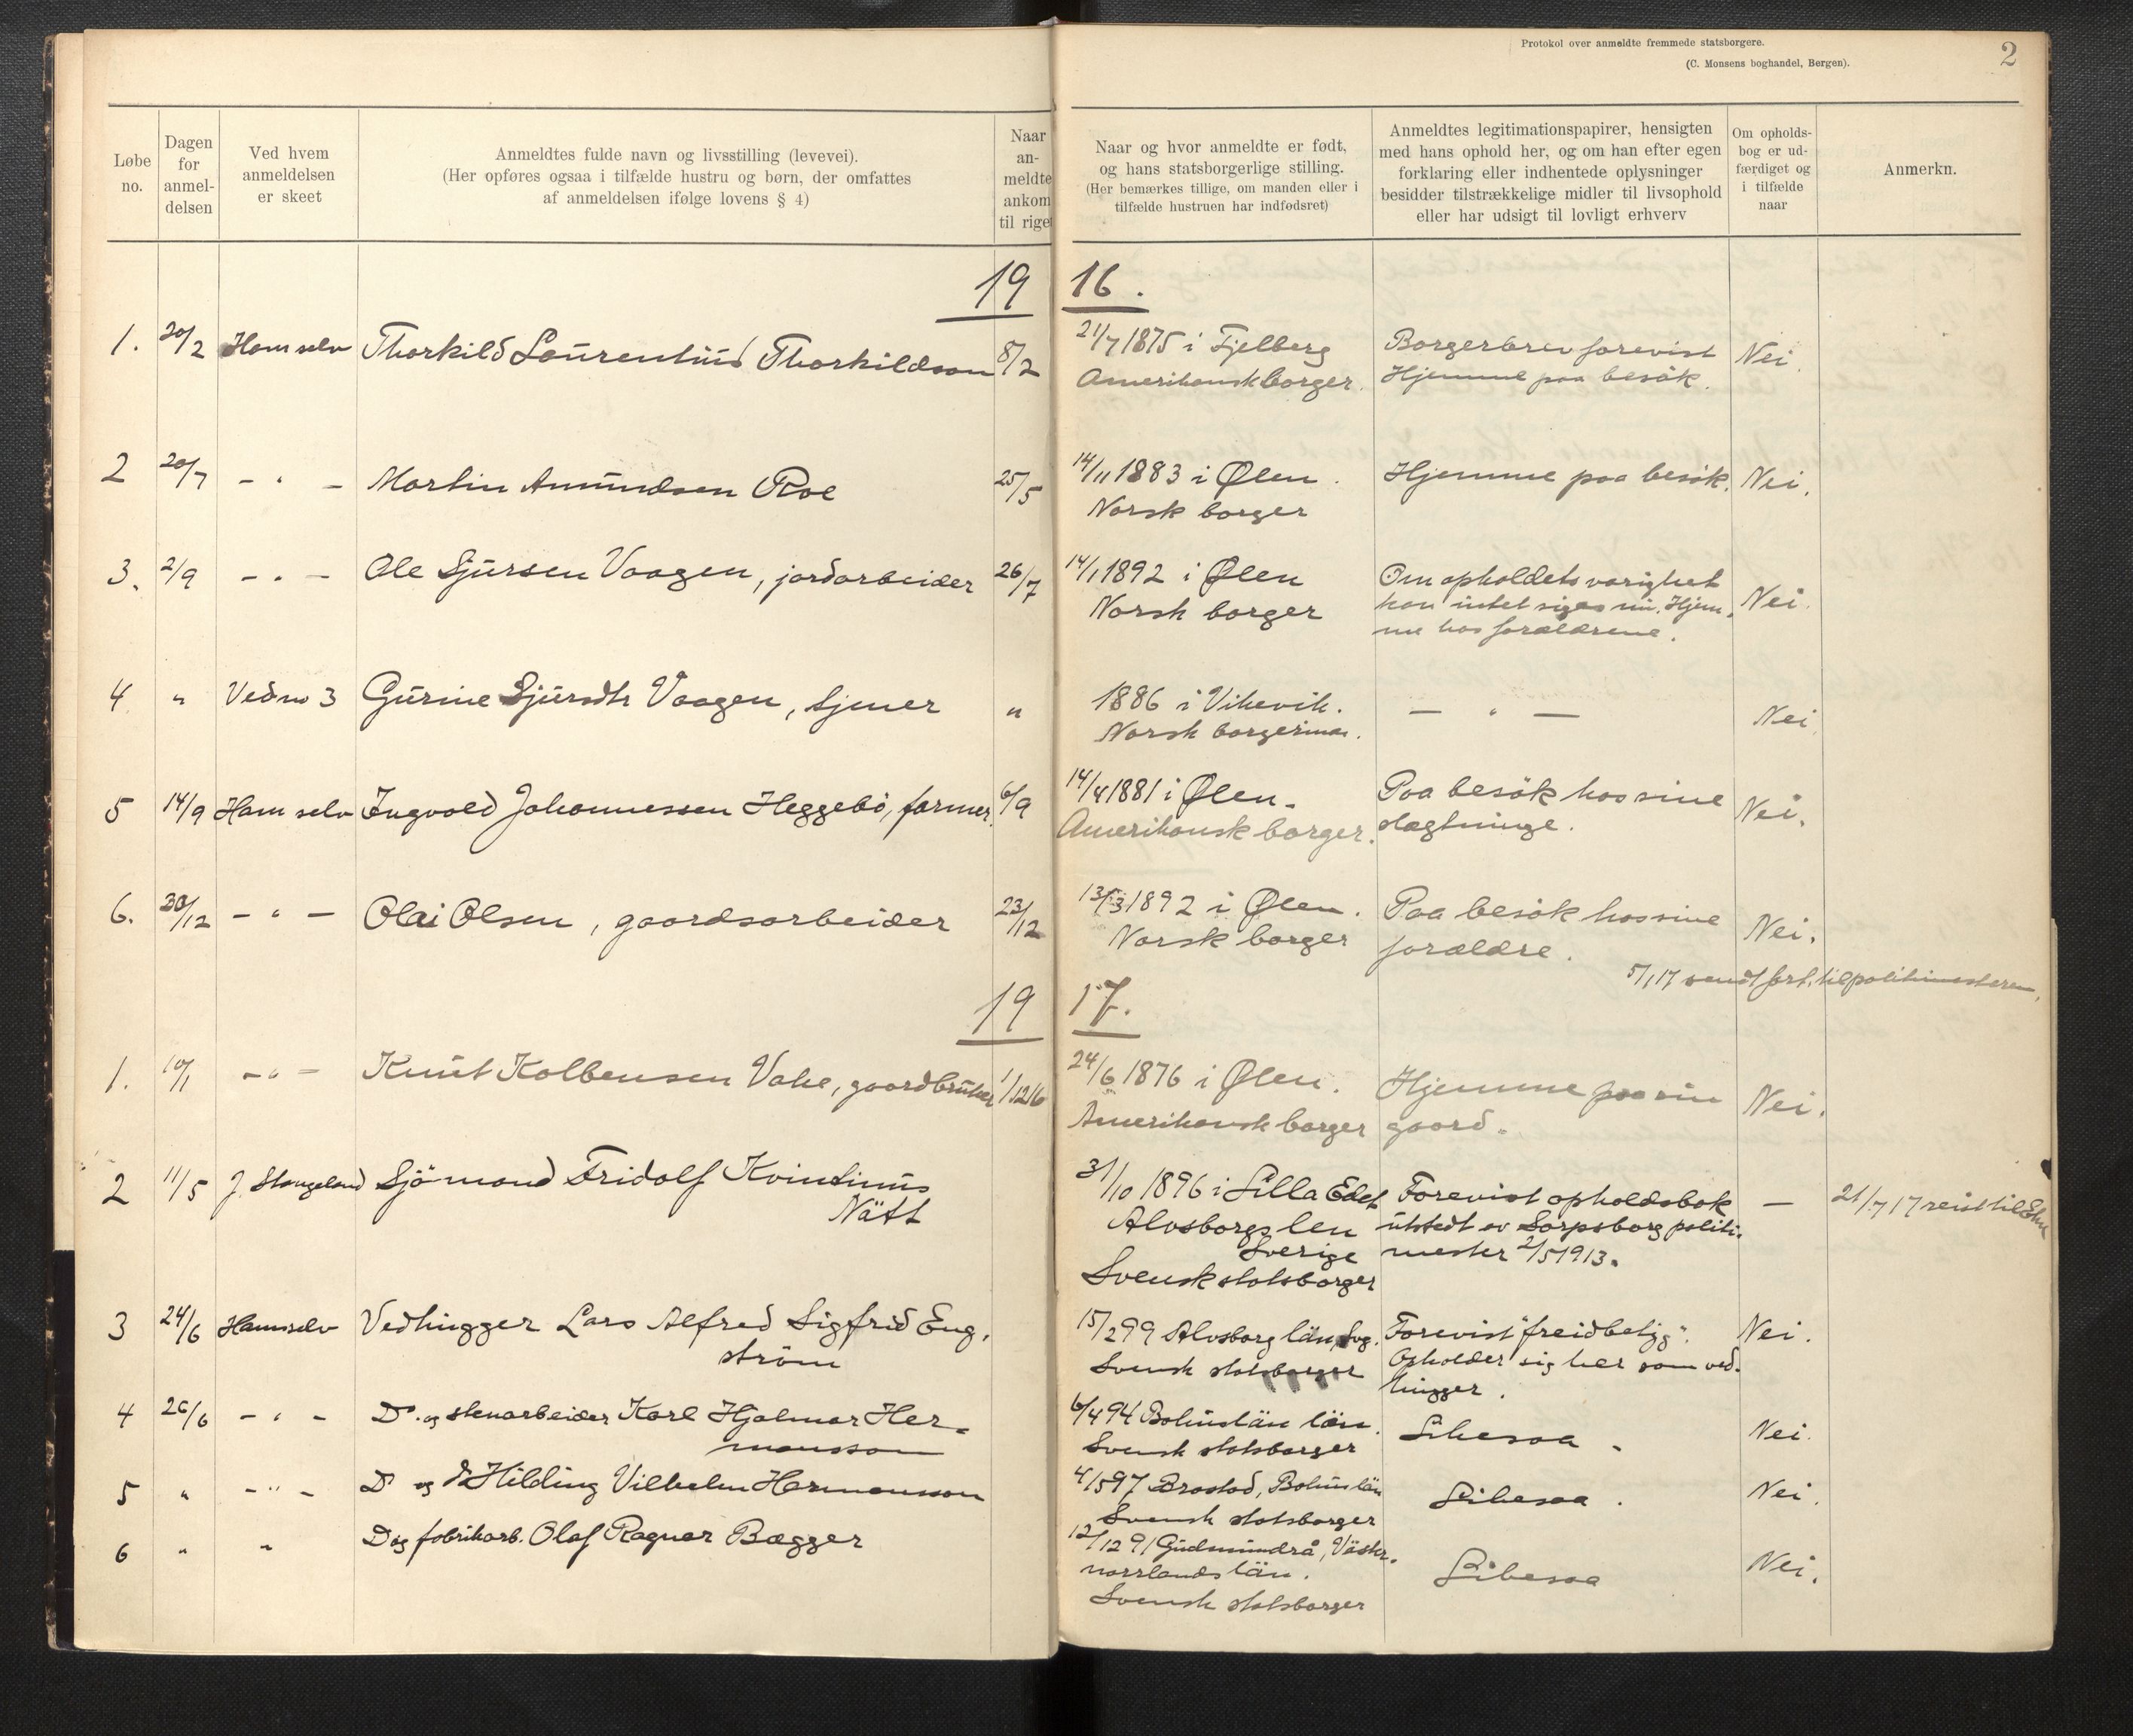 Protokol over anmeldte fremmede statsborgere.
(C. Monsens boghandel, Bergen).
2
Løbe
no.
Dagen
for
anmel-
delsen
Ved hvem
anmeldelsen
er skeet
Anmeldtes fulde navn og livsstilling (levevei).
(Her opføres ogsaa i tilfælde hustru og børn, der omfattes
af anmeldelsen ifølge lovens § 4)
Naar
an-
meldte
ankom
til riget
Naar og hvor anmeldte er født,
og hans statsborgerlige stilling.
(Her bemærkes tillige, om manden eller i
tilfælde hustruen har indfødsret)
Anmeldtes legitimationspapirer, hensigten
med hans ophold her, og om han efter egen
forklaring eller indhentede oplysninger
besidder tilstrækkelige midler til livsophold
eller har udsigt til lovligt erhverv
Om opholds-
bog er ud-
færdiget og
i tilfælde
naar
Anmerkn.
19 16.
1. 20/2 Ham selv Thorkild Laurentius Thorkildson 8/2
21/7 1875 i Fjelberg
Amerikansk borger.
Borgerbrev forevist
Hjemme paa besøk.
Nei.
2 20/7 - " - Martin Amundsen Roe 25/5
14/11 1883 i Ølen.
Norsk borger
Hjemme paa besøk.
Nei.
3. 2/9 - " - Ole Sjursen Vaagen, jordarbeider 26/7
14/1 1892 i Ølen
Norsk borger
Om opholdets varighet
kan intet siges nu. Hjem-
me hos forældrene.
Nei.
4 " Ved no 3 Gurine Sjursdtr Vaagen, tjener "
1886 i Vikevik.
Norsk borgerinde.
- " -
Nei
5 14/9 Ham selv Ingvald Johannessen Heggebö, farmer. 6/9
14/4 1881 i Ølen.
Amerikansk borger.
Paa besøk hos sine
slægtninge.
Nei.
6. 30/12 - " - Olai Olsen, gaardsarbeider 23/12
13/3 1892 i Ølen.
Norsk borger
Paa besøk hos sine
forældre.
Nei.
5/1 17 sendt fort. til politimesteren.
19 17.
1. 10/1 - " - Knut Kolbensen Vake, gaardbruker 1/12 16
24/6 1876 i Ølen.
Amerikansk borger
Hjemme paa sin
gaard.
Nei.
2 11/5 J. Stangeland Sjömand Fridolf Kvintinus
Nätt
31/10 1896 i Lilla Edet
Alvsborgs len
Sverige
Svensk statsborger
Forevist opholdsbok
utstedt av Sarpsborg politi-
mester 2/5 1913.
-
21/7 17 reist til
3 24/6 Ham selv Vedhugger Lars Alfred Sigfrid Eng-
ström
15/2 99 Alvsborg län, Svg.
Svensk statsborger
Forevist "freidbetyg".
Opholder sig her som ved-
hugger.
Nei.
4 26/6 - " - Do. og stenarbeider Karl Hjalmar Her-
mansson
6/4 94 Bohuslän län.
Svensk statsborger
Likesaa.
Nei.
5 " - " - Do og do Hilding Vilhelm Hermansson
4/5 97 Brastad, Bohuslän
Svensk statsborger
Likesaa.
Nei.
6 " " Do og fabrikarb. Olaf Ragnar Bægger
12/12 91 Gudmundrå, Väster-
norrlands län.
Svensk statsborger
Likesaa
Nei.